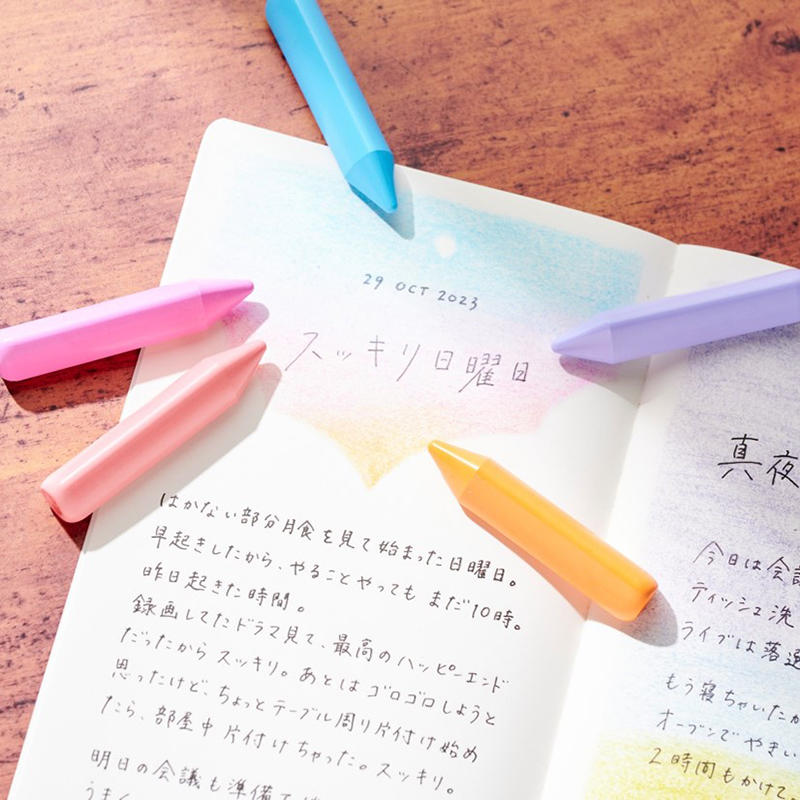 29 OCT 2023
スッキリ日曜日
はかない部分月食を見て始まった日曜日。
早起きしたから、やることやっても まだ10時。
昨日起きた時間。
録画してたドラマ見て、最高のハッピーエンド
だったから スッキリ。あとは ゴロゴロしようと
思ったけど、ちょっとテーブル周り片付け始め
たら、部屋中 片付けちゃった。スッキリ。
明日の会議も準備
真夜
今日は会議
ティッシュ洗
ライブは落選
もう寝ちゃいたか
オーブンでやきい
2時間もかけて